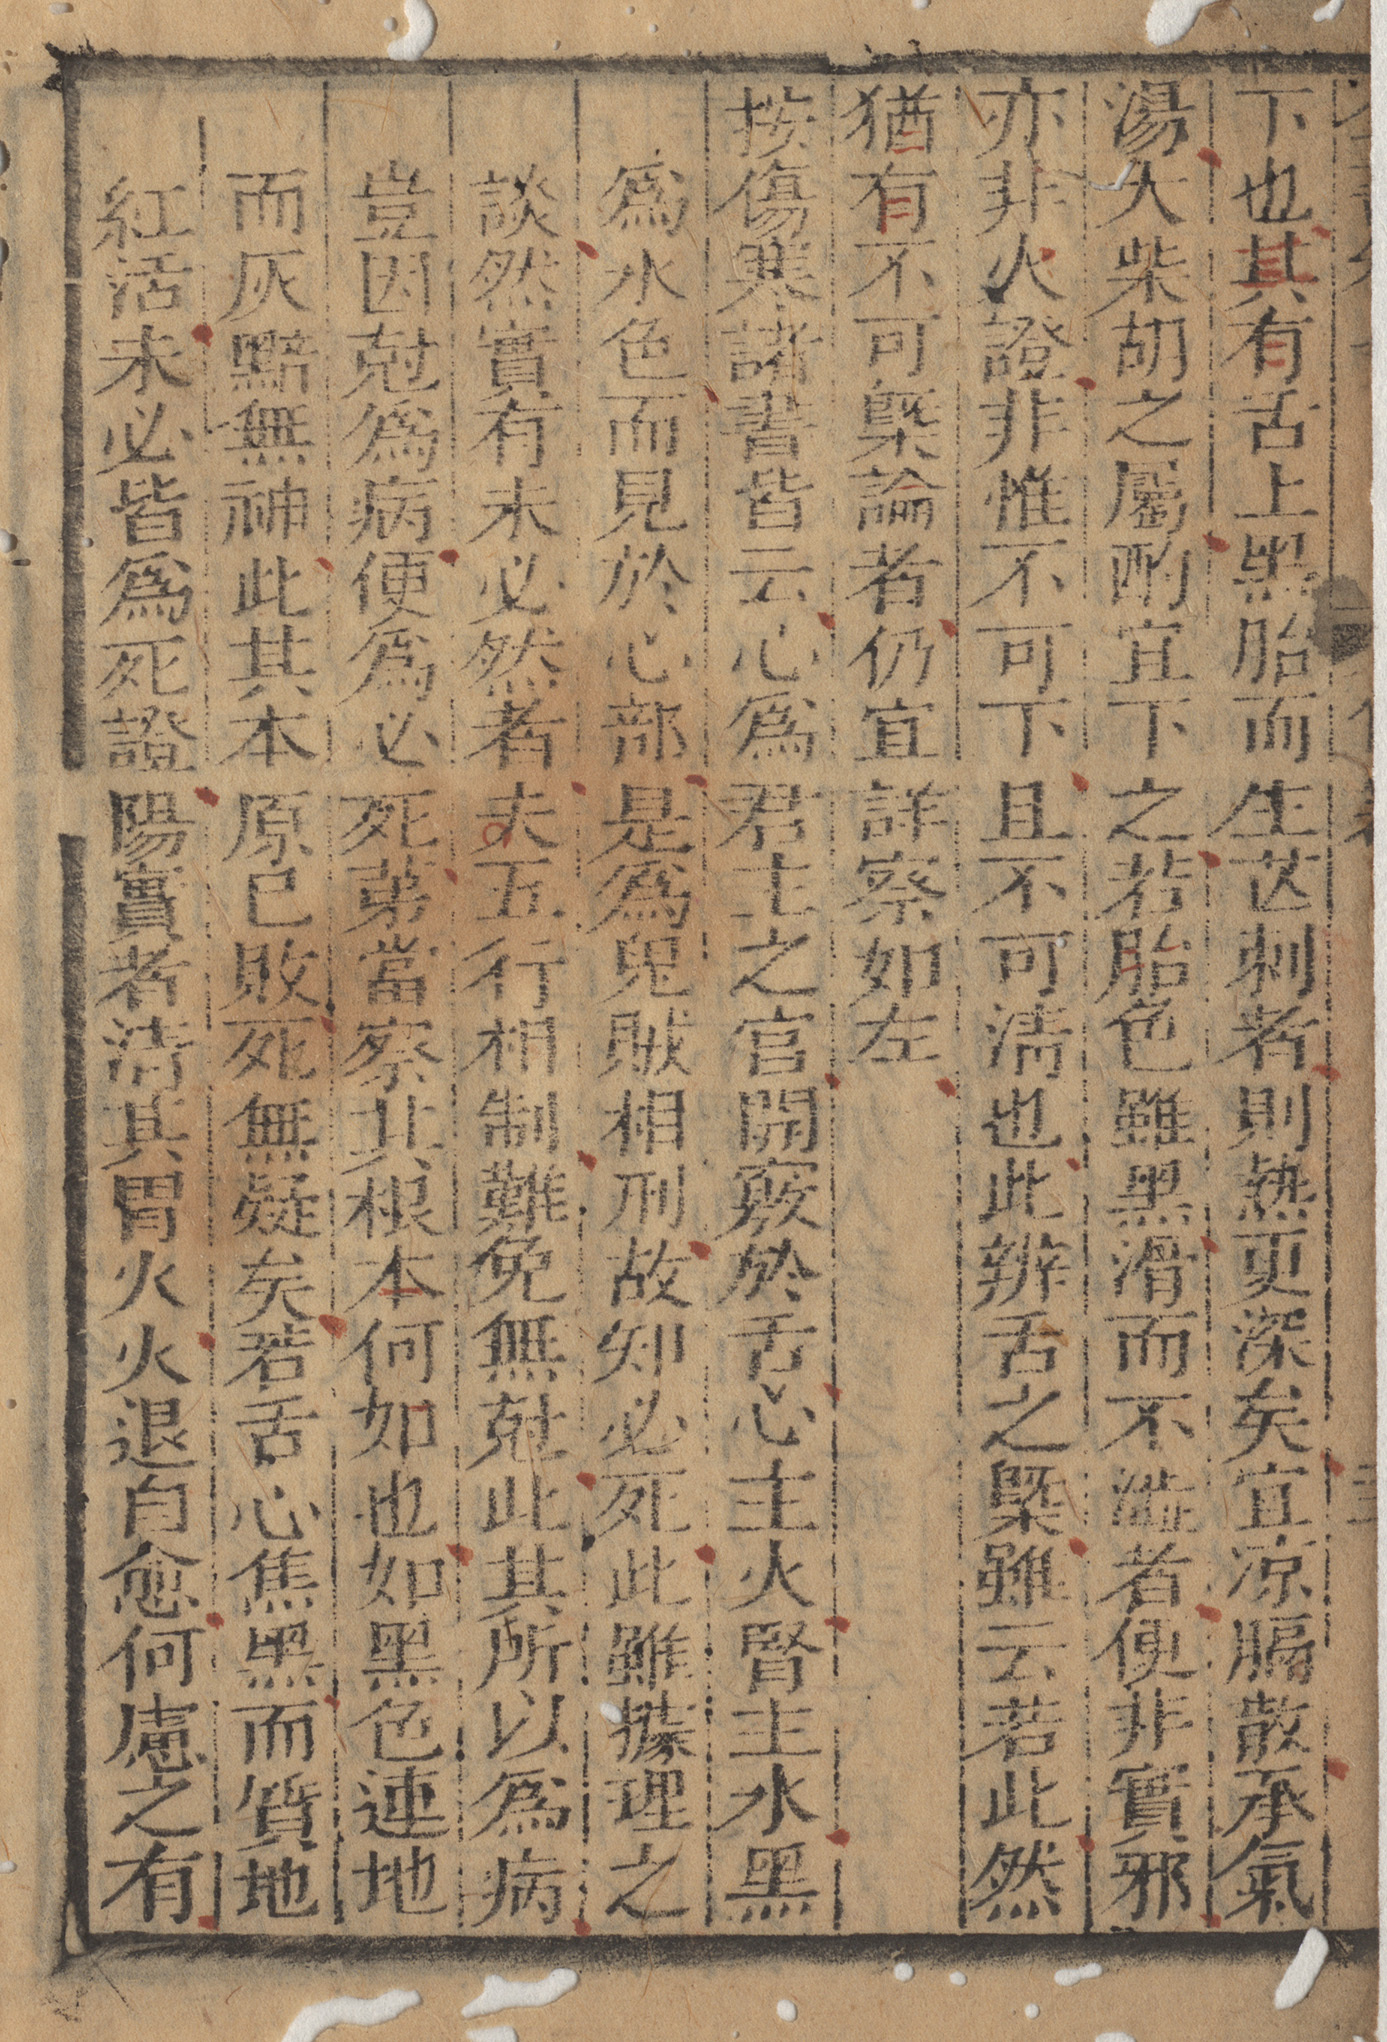 下也其有舌上黑胎而生芒刺者則熱更深矣宜凉膈散承氣
湯大柴胡之屬酌宜下之若胎色雖黑滑而不澁者便非實邪
亦非火證非惟不可下且不可清也此辨舌之槩雖云若此然
猶有不可槩論者仍宜詳察如左
按傷寒諸書皆云心爲君主之官開竅於舌心主火腎主水黑
爲水色而見於心部是爲鬼賊相刑故知必死此雖據理之
談然實有未必然者夫五行相制難免無尅此其所以爲病
豈因尅爲病便爲必死苐當察其根本何如也如黑色連地
而灰黯無神此其本原已敗死無疑矣若舌心焦黑而質地
紅活未必皆爲死證陽實者清其胃火火退自愈何慮之有